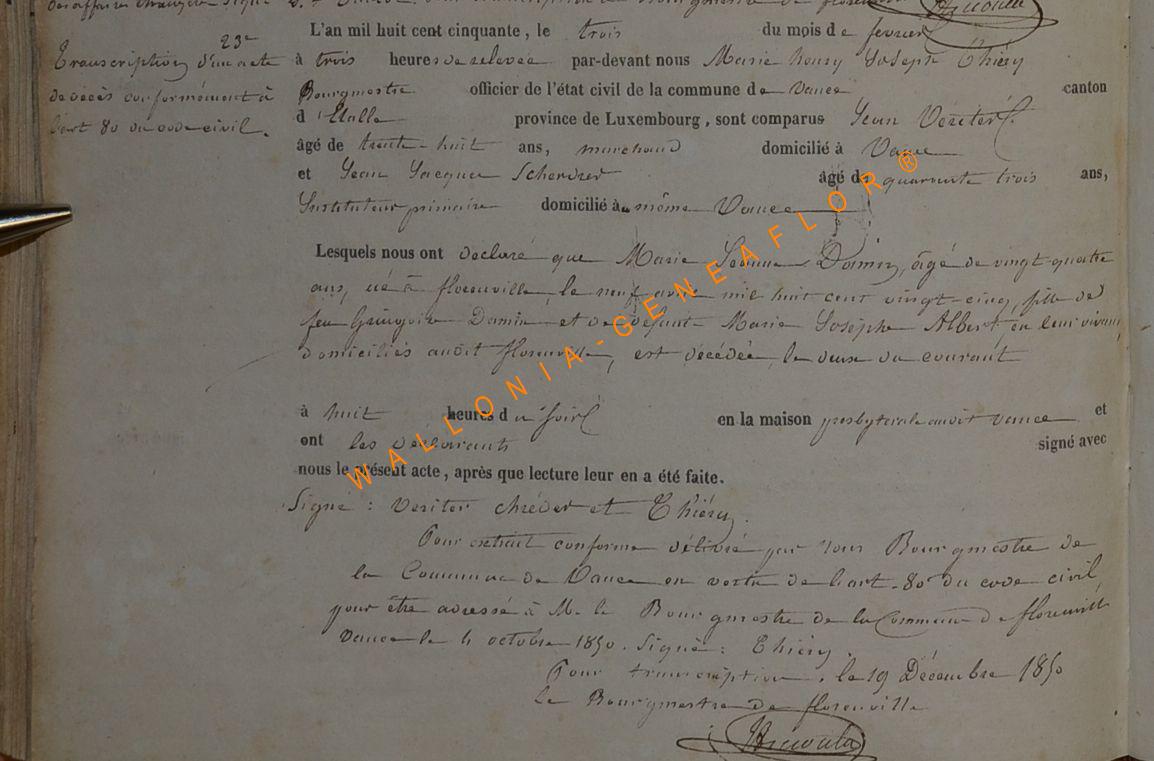 des affaires étrangères signé
L'an mil huit cent cinquante, le trois du mois de fevrier
23e
Transcription d'un acte
de décès conformément à
l'art 80 du code civil.
à trois heures de relevée par-devant nous Marie henry Joseph Thiéry
Bourgmestre officier de l'état civil de la commune de Vance canton
d'Etalle province de Luxembourg, sont comparus Jean Veriter
âgé de trente-huit ans, marchand domicilié à Vance
et Jean Jacques âgé de quarante trois ans,
Instituteur primaire domicilié à même Vance
Lesquels nous ont declaré que Marie Jeanne Domin, âgé de vingt-quatre
ans, né à florenville, le neuf avril mil huit cent vingt-cinq, fille de
feu Gringoire Domin et de défunte Marie Josèphe Albert en leur vivant
domiciliés audit florenville, est décédée, le deux du courant
à huit heures du soir en la maison presbyterale audit Vance et
ont les déclarants signé avec
nous le présent acte, après que lecture leur en a été faite.
Signé : Veriter chréder et Thiéry.
Pour extrait conforme délivré par nous Bourgmestre de
la Commune de Vance en vertu de l'art. 80 du code civil,
pour être adressé à M. le Bourgmestre de la Commune de florenville
Vance le 4 octobre 1850. Signé : Thiéry.
Pour transcription, le 19 Décembre 1850
Le Bourgmestre de florenville
WALLONIA-GENEAFLOR®